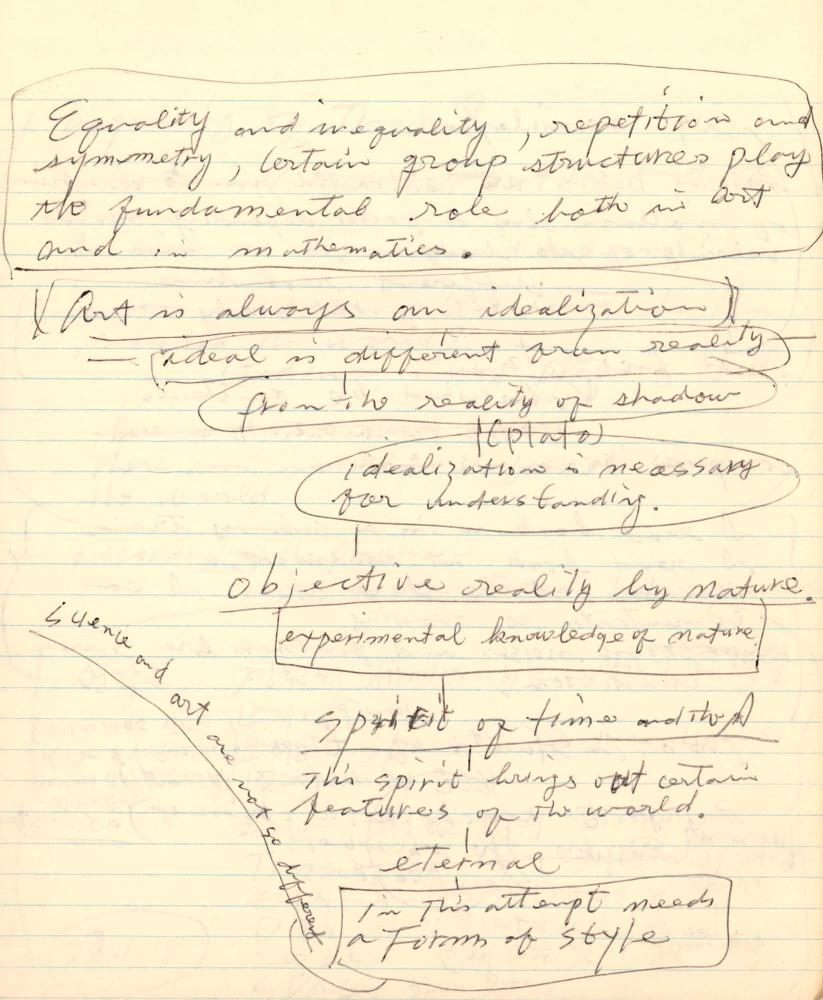 Equality and inequality, repetition and
symmetry, certain group structures play
the fundamental role both in art
and in mathematics.
(Art is always an idealization)
ideal is different from reality
from the reality of shadow
(plato)
idealization is necessary
for understanding.
objective reality by nature.
experimental knowledge of nature
spirit of time and
This spirit brings out certain
features of the world.
eternal
In This attempt needs
a Form of style
science and art are not so different